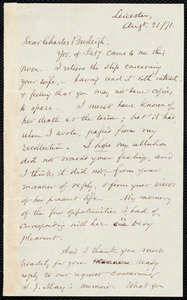 Leicester,
Augt. 21/71.
Dear Charles Burleigh,
Yrs. of Saty. came to me this
noon. I return the slip concerning
your wife, having read it with interest,
& feeling that you may not have copies
to spare. I must have known of
her death at the time; but it had
when I wrote, passed from my
recollection. I hope my allusion
did not wound your feelings, and
I think it did not, from your
manner of reply, & from your views
of her present life. My memory
of the few opportunities I had of
corresponding with her is very
pleasant.
And I thank you most
heartily for your ready
reply to our request concerning
S. J. May's memoir. What you